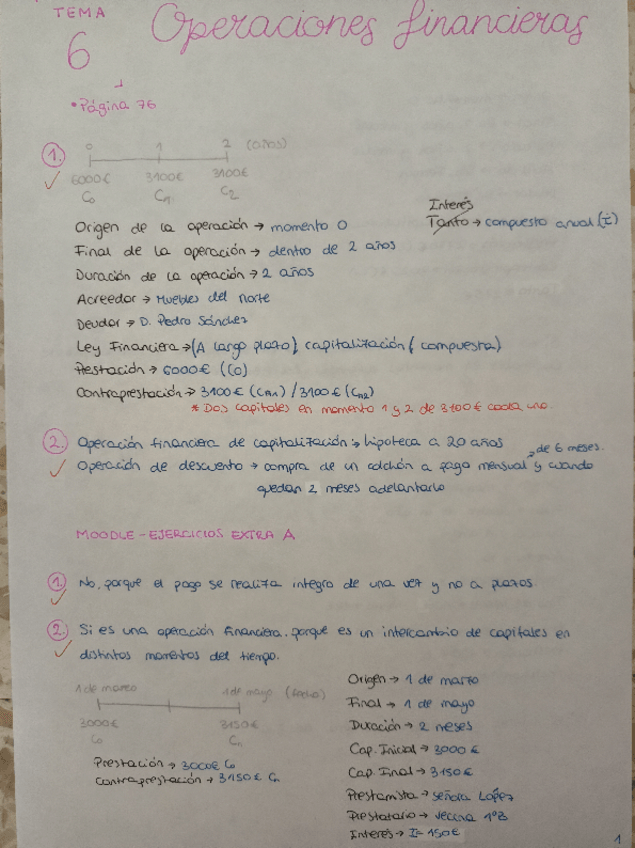 TEMA
6
Operaciones financieras
• Página 76
1.
0 1 2 (años)
6000€ 3100€ 3100€
C0 C1 C2
Origen de la operación → momento 0
Final de la operación → dentro de 2 años
Duración de la operación → 2 años
Acreedor → Muebles del norte
Deudor → D. Pedro Sánchez
Ley Financiera → (A largo plazo) capitalización (compuesta)
Prestación → 6000€ (C0)
Contraprestación → 3100€ (Cn1) / 3100€ (Cn2)
* Dos capitales en momento 1 y 2 de 3100€ cada uno.
Interés
Tanto → compuesto anual (i)
2. Operación financiera de capitalización → hipoteca a 20 años
Operación de descuento → compra de un colchón a pago mensual → de 6 meses. y cuando
quedan 2 meses adelantarlo
MOODLE - EJERCICIOS EXTRA A
1. No, porque el pago se realiza integro de una vez y no a plazos
2. Si es una operación financiera, porque es un intercambio de capitales en
distintos momentos del tiempo.
1 de marzo 1 de mayo (fecha)
3000€ 3150€
C0 Cn
Prestación → 3000€ C0
Contraprestación → 3150€ Cn
Origen → 1 de marzo
Final → 1 de mayo
Duración → 2 meses
Cap. Inicial → 3000€
Cap. Final → 3150€
Prestamista → señora López
Prestatario → vecina 1ºB
Interés → I = 150€
1